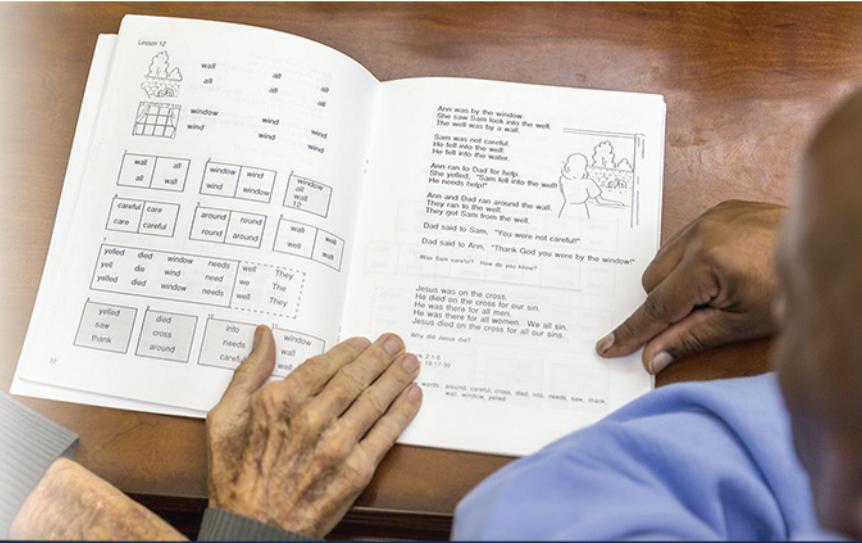 Lesson 12
wall all all
all all all
window wind wind
wind wind wind
wall all
all wall
window wind
wind window
window
all
wall
12
careful care
care careful
around round
round around
wall well
well wall
yelled died window needs well They
yell die wind need we The
yelled died window needs well They
yelled
saw
thank
died
cross
around
10
into
needs
careful
11
window
wall
well
Ann was by the window.
She saw Sam look into the well.
The well was by a wall.
Sam was not careful.
He fell into the well.
He fell into the water.
Ann ran to Dad for help.
She yelled, "Sam fell into the well!
He needs help!"
Ann and Dad ran around the wall.
They ran to the well.
They got Sam from the well.
Dad said to Sam, "You were not careful!"
Dad said to Ann, "Thank God you were by the window!"
Was Sam careful? How do you know?
Jesus was on the cross.
He died on the cross for our sin.
He was there for all men.
He was there for all women. We all sin.
Jesus died on the cross for all our sins.
Why did Jesus die?
2:1-5
19:17-30
words: around, careful, cross, died, into, needs, saw, thank,
wall, window, yelled